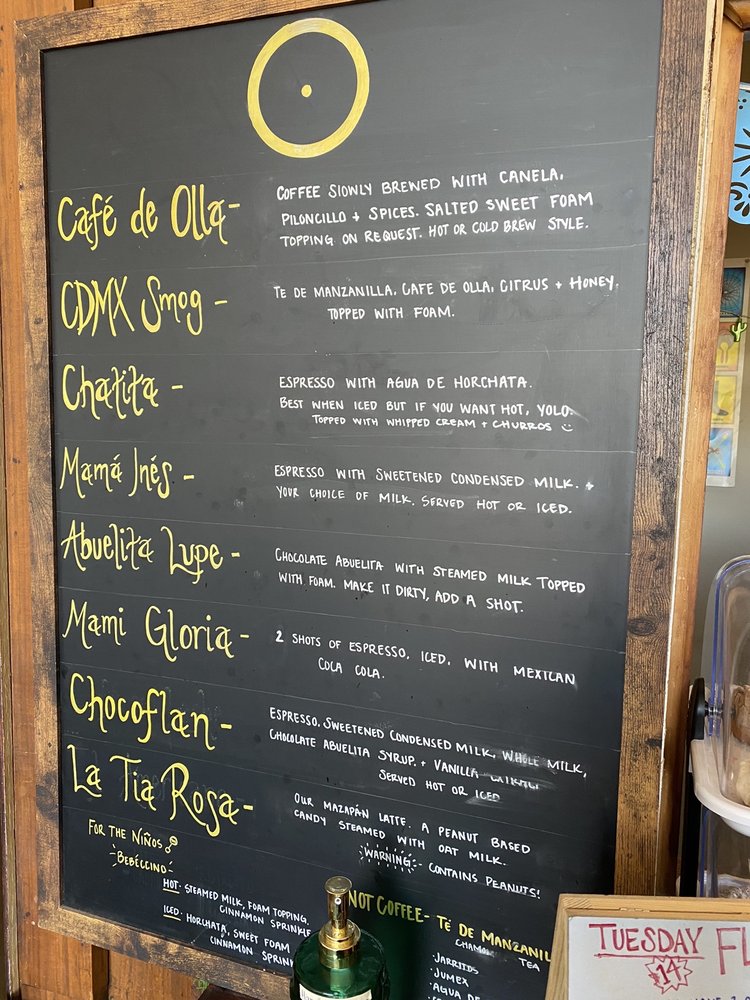 Café de Olla-
COFFEE SLOWLY BREWED WITH CANELA,
PILONCILLO + SPICES. SALTED SWEET FOAM
TOPPING ON REQUEST. HOT OR COLD BREW STYLE.
CDMX Smog -
TE DE MANZANILLA, CAFE DE OLLA, CITRUS + HONEY.
TOPPED WITH FOAM.
Chatita -
ESPRESSO WITH AGUA DE HORCHATA.
BEST WHEN ICED BUT IF YOU WANT HOT, YOLO.
TOPPED WITH WHIPPED CREAM + CHURROS
Mamá Inés -
ESPRESSO WITH SWEETENED CONDENSED MILK. +
YOUR CHOICE OF MILK. SERVED HOT OR ICED.
Abuelita Lupe -
CHOCOLATE ABUELITA WITH STEAMED MILK TOPPED
WITH FOAM. MAKE IT DIRTY, ADD A SHOT.
Mami Gloria-
2 SHOTS OF ESPRESSO, ICED, WITH MEXICAN
COCA COLA.
Chocoflan -
ESPRESSO, SWEETENED CONDENSED MILK, WHOLE MILK,
CHOCOLATE ABUELITA SYRUP. + VANILLA
SERVED HOT OR ICED
La Tia Rosa-
OUR MAZAPÁN LATTE. A PEANUT BASED
CANDY STEAMED WITH OAT MILK.
WARNING - CONTAINS PEANUTS!
FOR THE NIÑOS
BEBÉCCINO
HOT: STEAMED MILK, FOAM TOPPING,
CINNAMON SPRINKLE
ICED: HORCHATA, SWEET FOAM
CINNAMON SPRIN
NOT COFFEE- TÉ DE MANZANIL
CHAMOM TEA
·JARRITOS
·JUMEX
·AGUA DE
TUESDAY FL
14